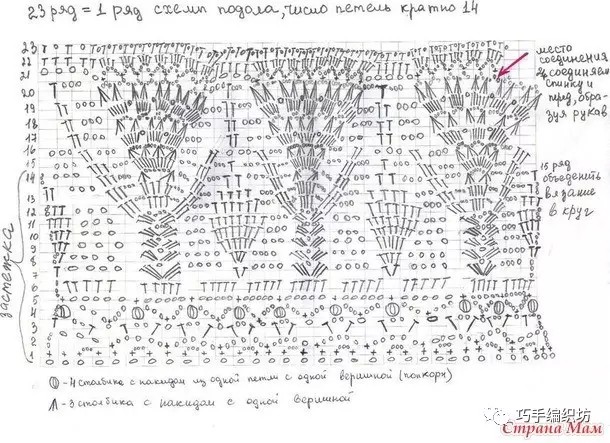 23 ряд = 1 ряд схемы подола, число петель кратно 14
23
22
21
20
19
18
17
16
15
14
13
12
11
10
9
8
7
6
5
4
3
2
1
место
соединения
соединяем
спинку и
перед, обра-
зуя рукав
15 ряд
объеденить
вязание
в круг
застежка
- 4 столбика с накидом из одной петли с одной вершиной (попкорн)
- 3 столбика с накидом с одной вершиной
巧手编织坊
Страна Мам